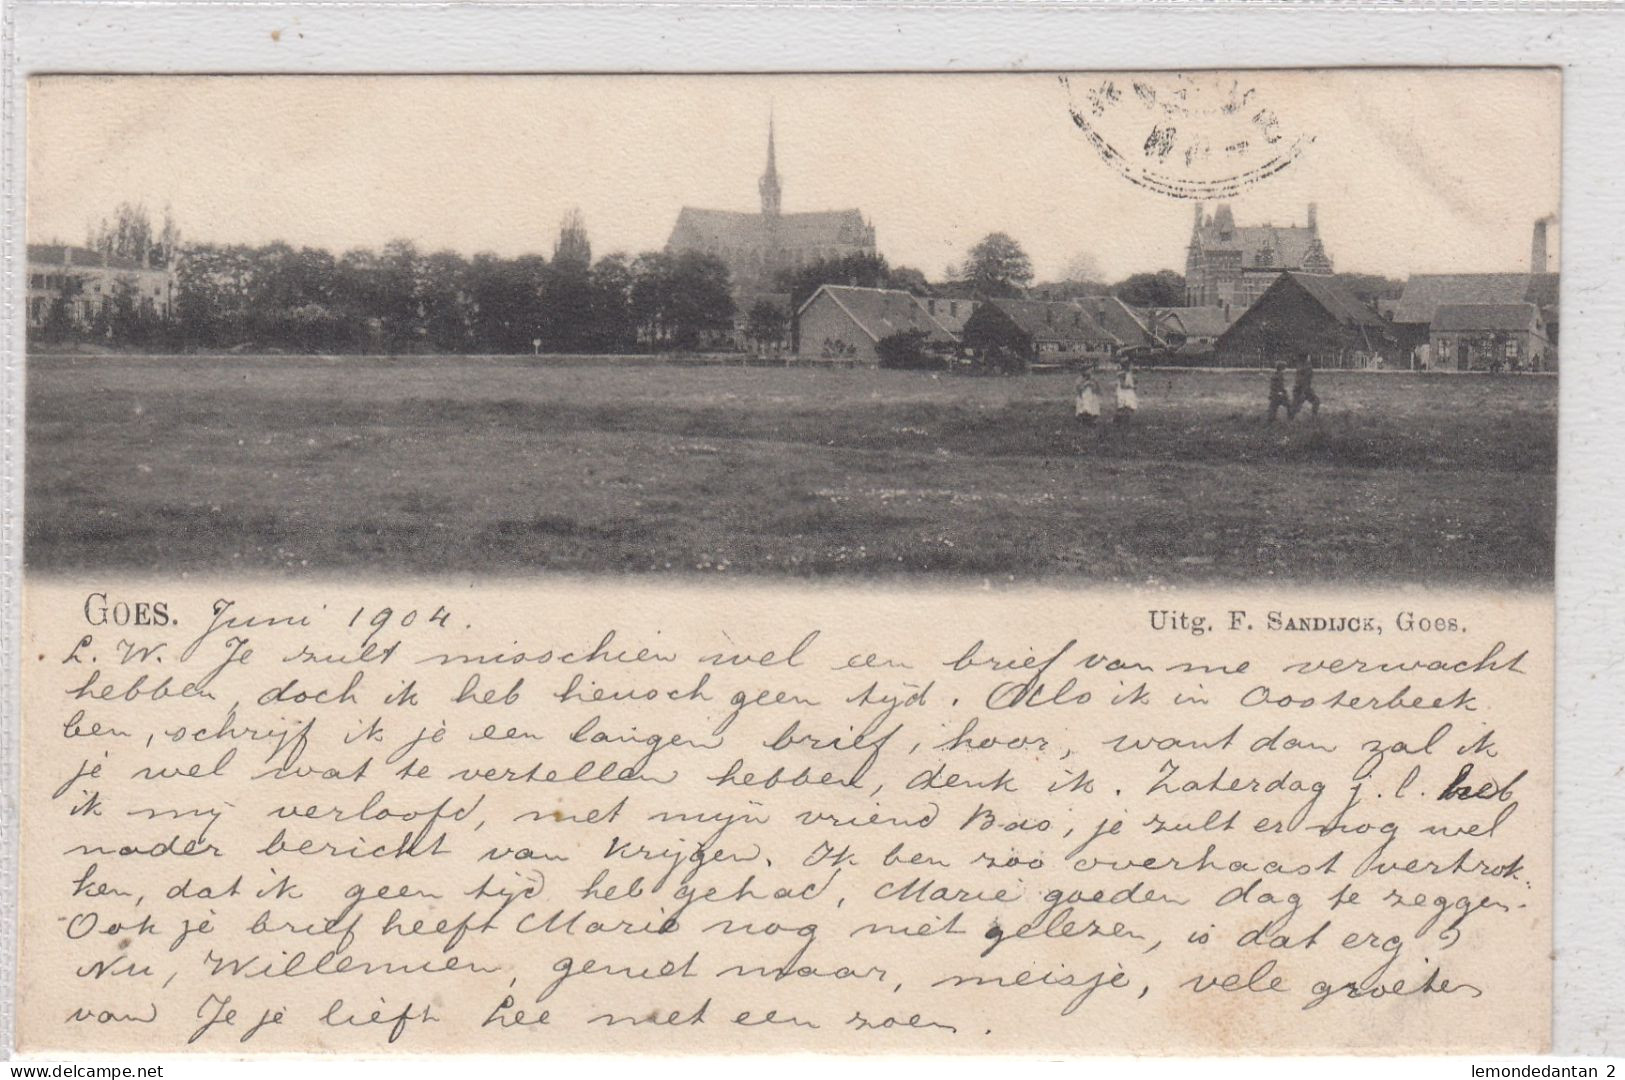 GOES. Juni 1904.
Uitg. F. SANDIJCK, Goes.
L. W. Je zult misschien wel een brief van me verwacht
hebben, doch ik heb heusch geen tijd. Als ik in Oosterbeek
ben, schrijf ik je een langen brief, hoor, want dan zal ik
je wel wat te vertellen hebben, denk ik. Zaterdag j.l. heb
ik mij verloofd, met mijn vriend Bas, je zult er nog wel
nader bericht van krijgen. Ik ben zoo overhaast vertrok-
ken, dat ik geen tijd heb gehad, Marie goeden dag te zeggen.
Ook je brief heeft Marie nog niet gelezen, is dat erg?
Nu, Willemien, geniet maar, meisje, vele groeten
van Je je liefh. Lee met een zoen.
lemondedantan 2
www.delcampe.net